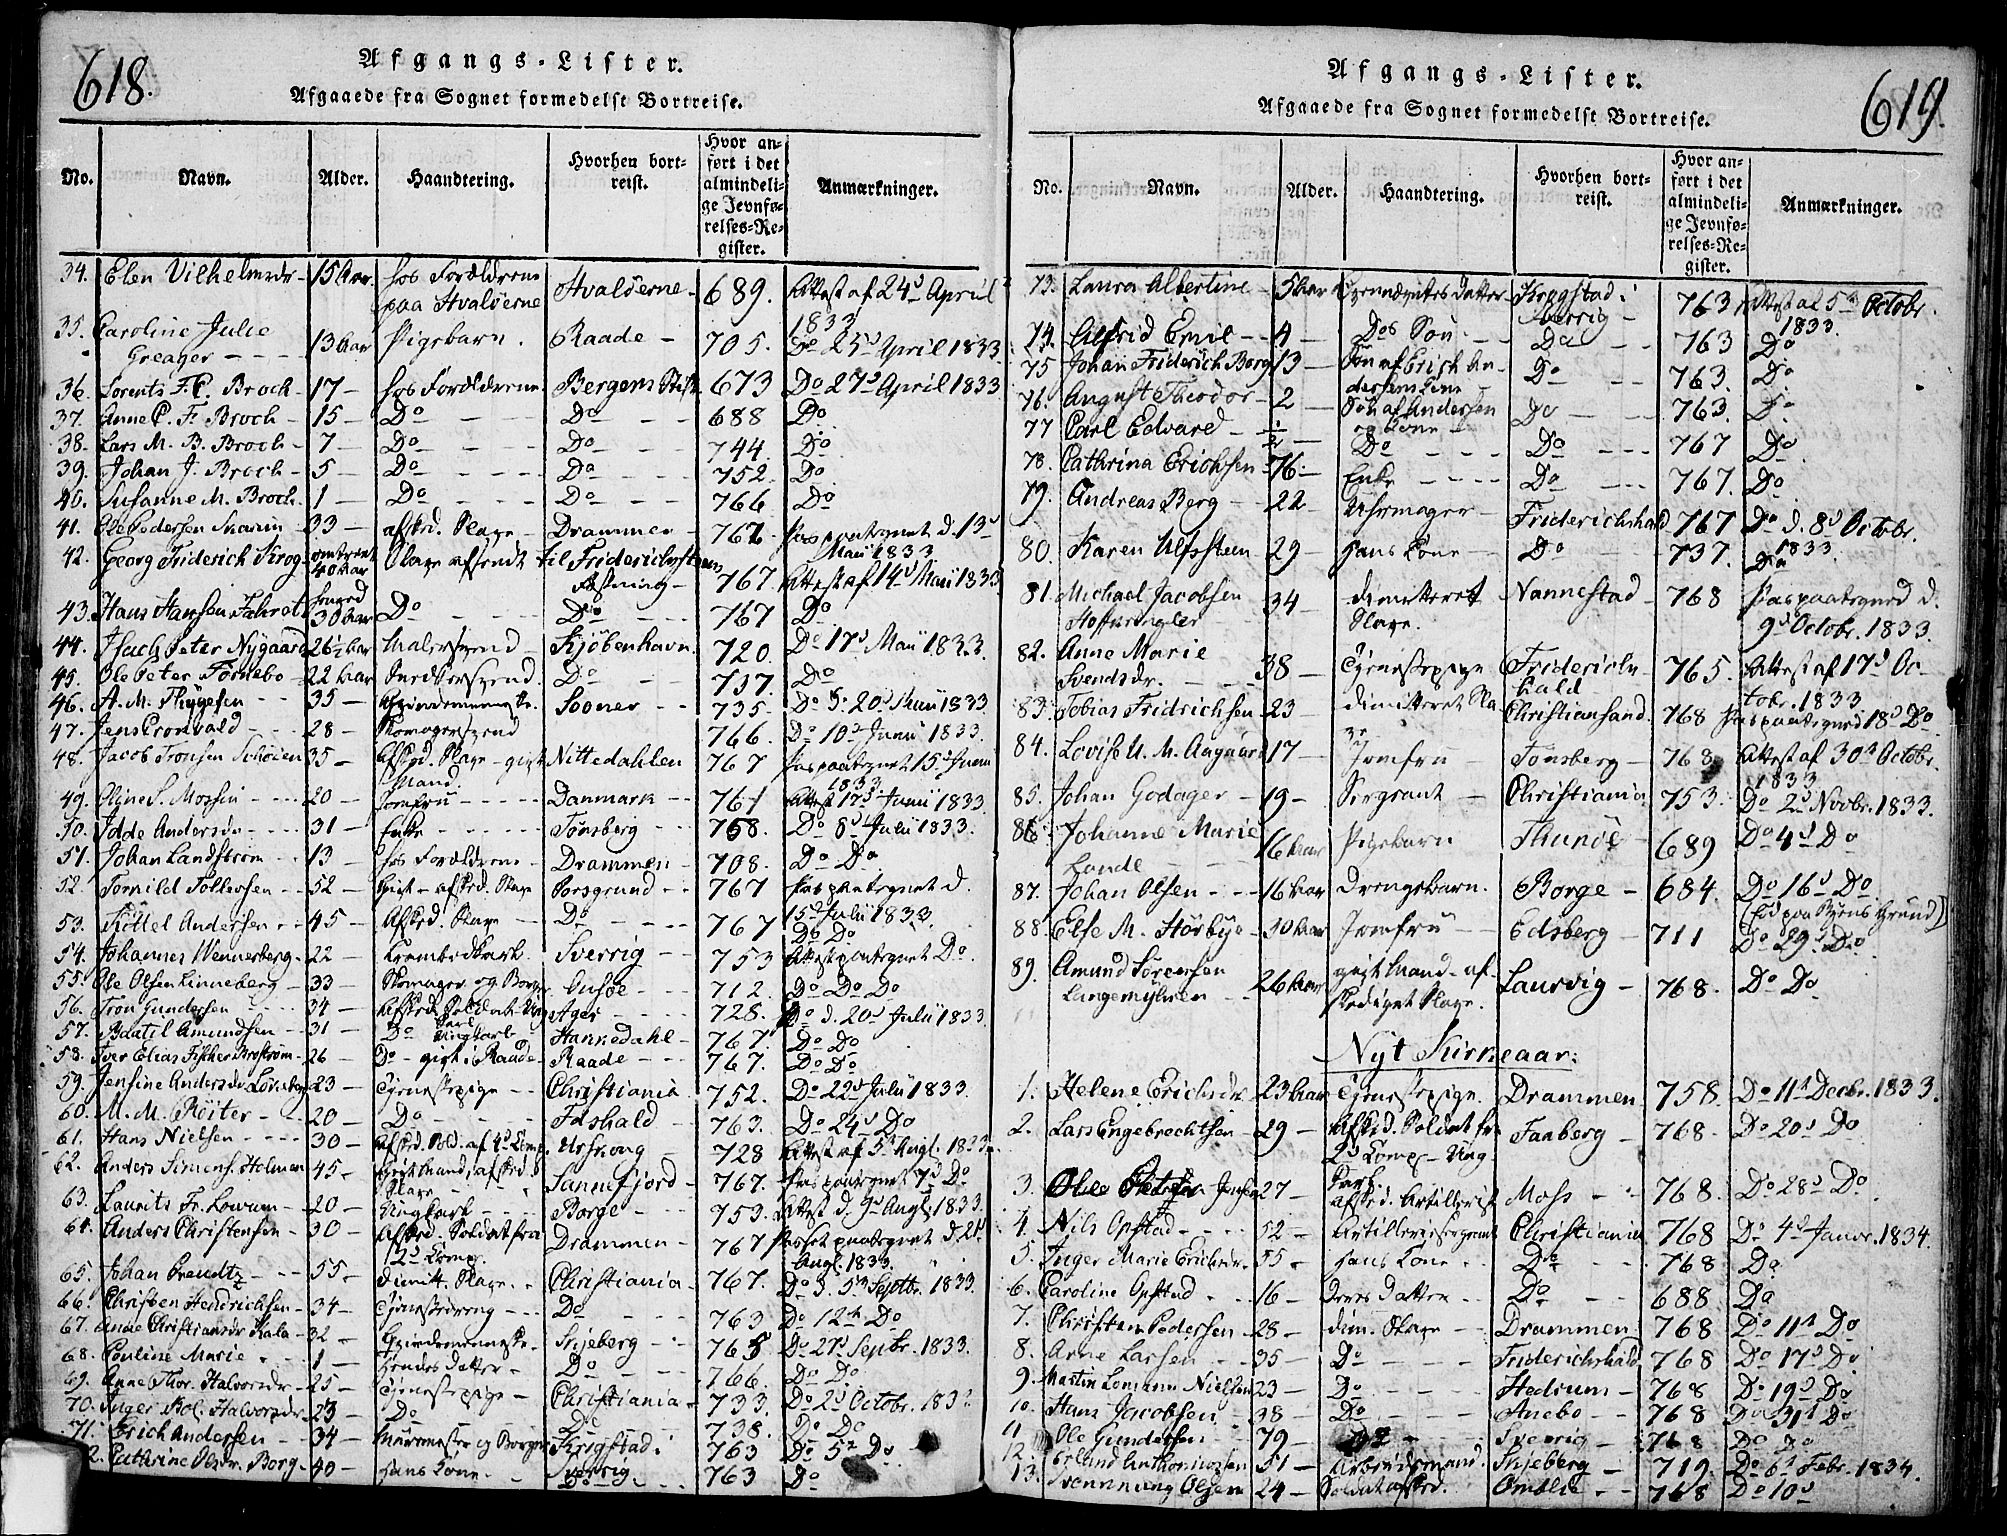 618.
Afgangs-Lister.
Afgaaede fra Sognet formedelst Bortreise.
No. Navn. Alder. Haandtering. Hvorhen bortreist. Hvor anført i det almindelige Jevnførelses-Register. Anmærkninger.
34. Elen Vilhelmsdr 15 Aar hos Forældrene paa Hvaløerne Hvaløerne 689. Attest af 24d April 1833
35. Caroline Julie Greager 13 Aar Pigebarn. Raade 705. Do 25d April 1833
36. Lorents F. C. Broch 17 hos Forældrene Bergens Stift 673 Do 27d April 1833
37. Anne C. F. Broch 15 Do Do 688 Do
38. Lars M. B. Broch 7 Do Do 744. Do
39. Johan J. Broch 5 Do Do 752. Do
40. Susanne M. Broch 1 Do Do 766 Do
41. Ole Pedersen 33 afsked. Slave Drammen 767 Pas paategnet d. 13d Maii 1833
42. Georg Friderich Krog omtrent 40 Aar Slave afsendt til Friderichsteens Fæstning 767. Attest af 14d Maii 1833
43. Hans Hansen 30 Aar Do Do 767 Do
44. Isach Peter Nygaard 26½ Aar Malersvend Kjøbenhavn 720. Do 17d Maii 1833.
45. Ole Peter Tørnebo 22 Aar Snedkersvend. Do 737. Do
46. A. M. Thygesen 35 Qvindemenneske. Sooner 735. Do d. 20d Maii 1833
47. Jens Cronvald 28 Skomagersvend 766. Do 10d Junii 1833.
48. Jacob Tronsen 35 Afsked. Slave gift Mand Nittedahlen 767 Pas paategnet 15d Junii 1833
49. Oline S. Mossin 20 Jomfru Danmark 761 Attest 17d Junii 1833
50. Idde Andersdr 31 Enke Tønsberg 768. Do 8d Julii 1833.
51. Johan Landstrøm 13 hos Forældrene Drammen 708. Do Do
52. Tomild Tollefsen 52 Gift afsked. Slave Porsgrund 767 Pas paategnet d. 15d Julii 1833
53. Kittel Andersen 45 Afsked. Slave Do 767 Do Do
54. Johannes Wennerberg 22 Sverrig 753 Attest paategnet Do.
55. Ole Olsen Linneberg 33 Skomager og Borger Onsøe 712. Do Do Do
56. Tron Gundersen 34 Afsked. Soldat Ungkarl Ager 728. Do d. 20d Julii 1833.
57. Baatel Amundsen 31 Do Ungkarl Hannedahl 767 Do Do
58. Iver Elias Fischer Brostrøm 26 Do gift i Raade Raade 767. Do Do
59. Jensine Andersdr 23 Tjenestepige Christiania 752. Do 22d Julii 1833.
60. M. M. Röiter 20 Do Foshald 763. Do 24d Do
61. Hans Nielsen 30 Afsked. Sold. af 4d Comp. 728 Attest af 5d Augt. 1833
62. Anders Simens. Holman 45 Gift Mand, afsked. Slave Sannefjord 767. Pas paategnet 7d Do
63. Laurits Fr. Lovum 20 Ungkarl Borge 753. Attest d. 9d Augt. 1833.
64. Anders Christensen 30 Afsked. Soldat fra 2d Comp. Drammen 767 Passet paategnet d. 21d Augt. 1833.
65. Johan Brendtz 55 Dimitt. Slave Christiania 767. Do d. 5d Septbr. 1833.
66. Christen Hendrichsen 34 Tjenestedreng Do 763 Do 12te Do
67. Anne Christiansdr Kala 32 Qvindemenneske Skjeberg 765 Do 27d Septbr. 1833.
68. Pouline Marie 1 hendes Datter Do 766. Do Do
69. Anne Thor. Halvorsdr 25 Tjenestepige Christiania 733. Do 2d Octobr. 1833
70. Inger Bol. Halvorsdr 23 Do Do 738. Do Do
71. Erich Andersen 34 Muurmester og Borger Krogstad i Sverrig 763 Do 5te Do
2. Cathrine Olsdr. Borg 40 hans Kone. Do 763 Do
619.
Afgangs-Lister.
Afgaaede fra Sognet formedelst Bortreise.
No. Navn. Alder. Haandtering. Hvorhen bortreist. Hvor anført i det almindelige Jevnførelses-Register. Anmærkninger.
73. Laura Albertine 5 Aar Datter Krogstad i Sverrig 763 Attest af 5te Octobr. 1833.
74. Alfrid Emil 4 Dos Søn Do 763 Do
75 Johan Friderich Borg 13 Søn af Erich Andersens Kone Do 763. Do
76. August Theodor 2 Søn af Andersen og Kone Do 763. Do
77 Carl Edvard ½ Do Do 767 Do
78. Cathrina Erichsen 76 Enke Do 767. Do
79. Andreas Berg 22 Uhrmager Friderichshald 767 Do d. 8d Octobr. 1833.
80. Karen Ulfsteen 29 hans Kone Do 737. Do
81. Michael Jacobsen 34 dimitteret Slave. Nannestad 768 Pas paategned d. 9d Octobr. 1833.
82. Anne Marie Svendsdr. 38 Tjenestepige Friderichshald 765. Attest af 17d Octobr. 1833
83. Tobias Fridrichsen 23 dimitteret Slave Christiansand 768 Pas paategned 18d Do
84. Lovise U. M. Aagaard 17 Jomfru Tønsberg 768 Attest af 30te Octobr. 1833
85. Johan Godager 19 Sergeant Christiania 753. Do 2d Novbr. 1833.
86. Johanne Marie Lande 16 Aar Pigebarn Thunöe 689 Do 4d Do
87. Johan Olsen 16 Aar Drengebarn. Borge 684. Do 16d Do
88. Else M. Hörbye 30 Aar Jomfru Edsberg 711 (Fød paa Byens Grund) Do 29d Do
89. Amund Sørensen Langemyhren 26 Aar gift Mand afskediget Slave. Laurvig 768. Do Do
Nyt Kirkeaar.
1. Helene Erichsdr 23 Aar Tjenestepige. Drammen 758. Do 11te Decbr. 1833.
2. Lars Engebrechtsen 29 Afsked. Soldat fr 2d Comp. Ungkarl. Faaberg 768. Do 20d Do
3. Ole Jensen 27 afsked. Artillerist Moss 768. Do 28d Do
4. Nils Opstad 52 Artilleriesergeant Christiania 768 Do 4d Januar. 1834.
5. Inger Marie Erichsdr. 55 hans Kone Do 768 Do
6. Caroline Opstad 16 deres Datter Do 688 Do
7. Christen Pedersen 28 dim. Slave Drammen 768 Do 11te Do
8. Arne Larsen 35 Do Friderichshald 768 Do 17d Do
9. Martin Lomann Nielsen 23 Do Hedrum 768 Do 19d Do
10. Hans Jacobsen 38 Do Anebo 768 Do 31te Do
11 Ole Gundersen 79 Do Sverrig 768 Do Do
12. Erland Anthonissen 51 Arbeidsmand Skjeberg 719. Do 6te Febr. 1834.
13. Svennung Olsen 24 Soldat afsked. Omblie 768 Do 10d